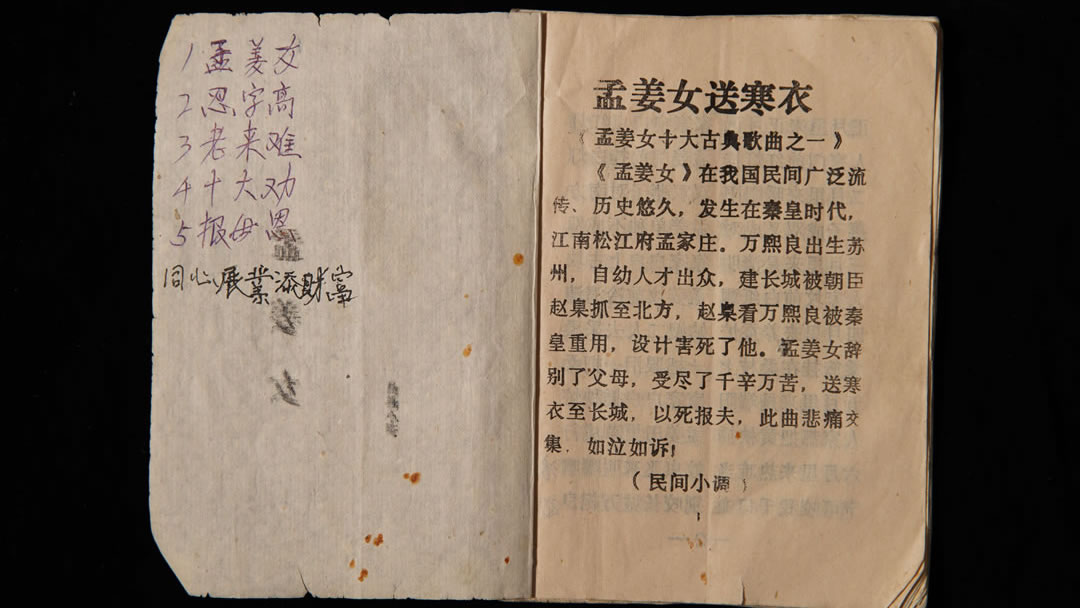 1 孟姜女
2 忍字高
3 老来难
4 十大劝
5 报母恩
同心展业添财富
孟姜女送寒衣
《孟姜女十大古典歌曲之一》
《孟姜女》在我国民间广泛流
传、历史悠久，发生在秦皇时代，
江南松江府孟家庄。万熙良出生苏
州，自幼人才出众，建长城被朝臣
赵臬抓至北方，赵臬看万熙良被秦
皇重用，设计害死了他。孟姜女辞
别了父母，受尽了千辛万苦，送寒
衣至长城，以死报夫，此曲悲痛交
集．如泣如诉！
（民间小调）